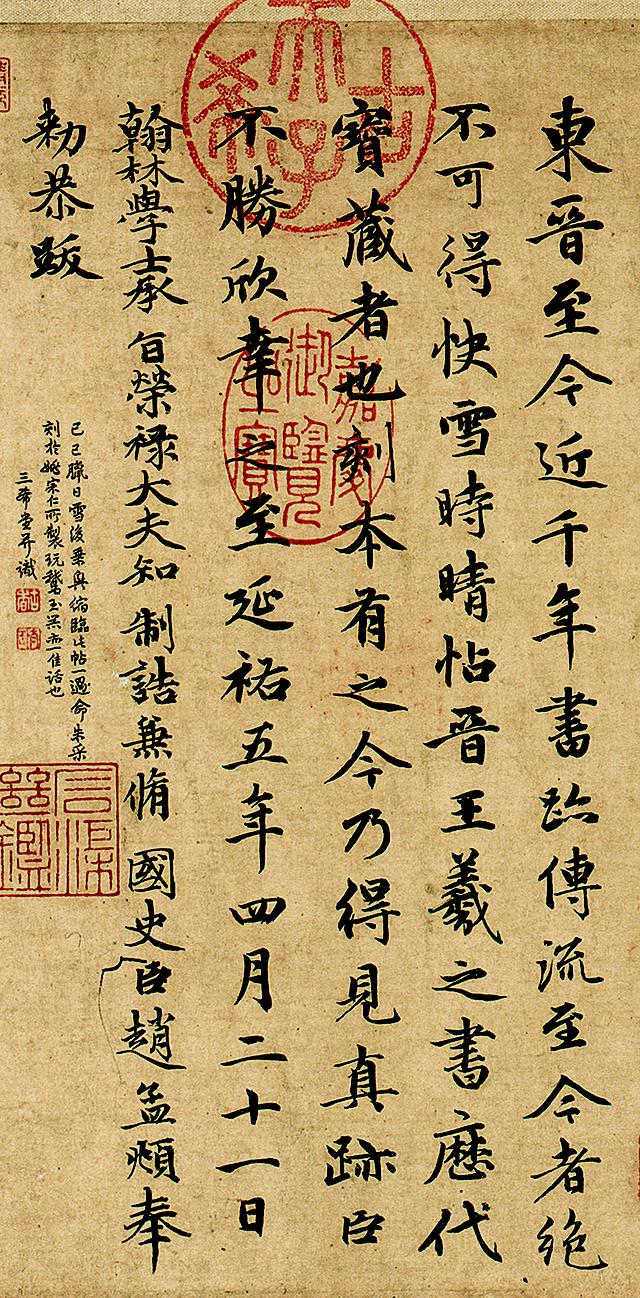 東晉至今近千年書跡傳流至今者絶
不可得快雪時晴帖晉王羲之書歷代
寶藏者也刻本有之今乃得見真跡臣
不勝欣幸之至延祐五年四月二十一日
翰林學士承旨榮祿大夫知制誥兼脩國史臣趙孟頫奉
勑恭跋
己巳臘日雪後乘輿縮臨此帖一過命朱采
刻於姚宗仁所製玩鵞玉器亦一佳話也
三希堂并識
古希天子
嘉慶御覽之寶
石渠繼鑑